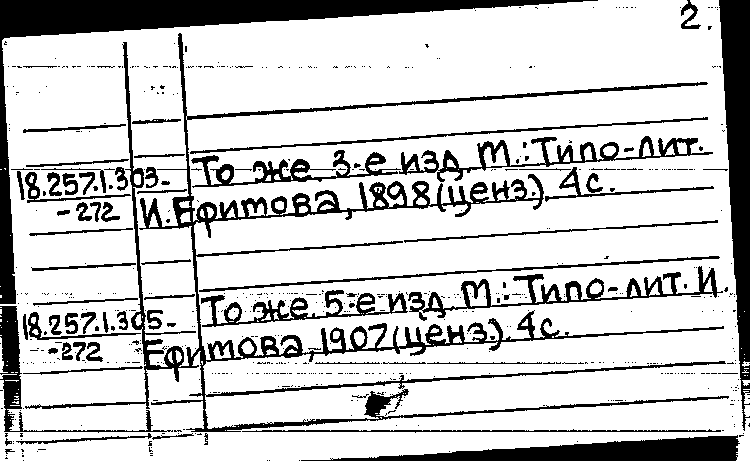 2.
18.257.1.303- То же. 3-е изд. М.: Типо-лит.
-272 И. Ефимова, 1898 (ценз). 4с.
18.257.1.305- То же. 5-е изд. М.: Типо-лит. И.
-272 Ефимова, 1907 (ценз). 4с.